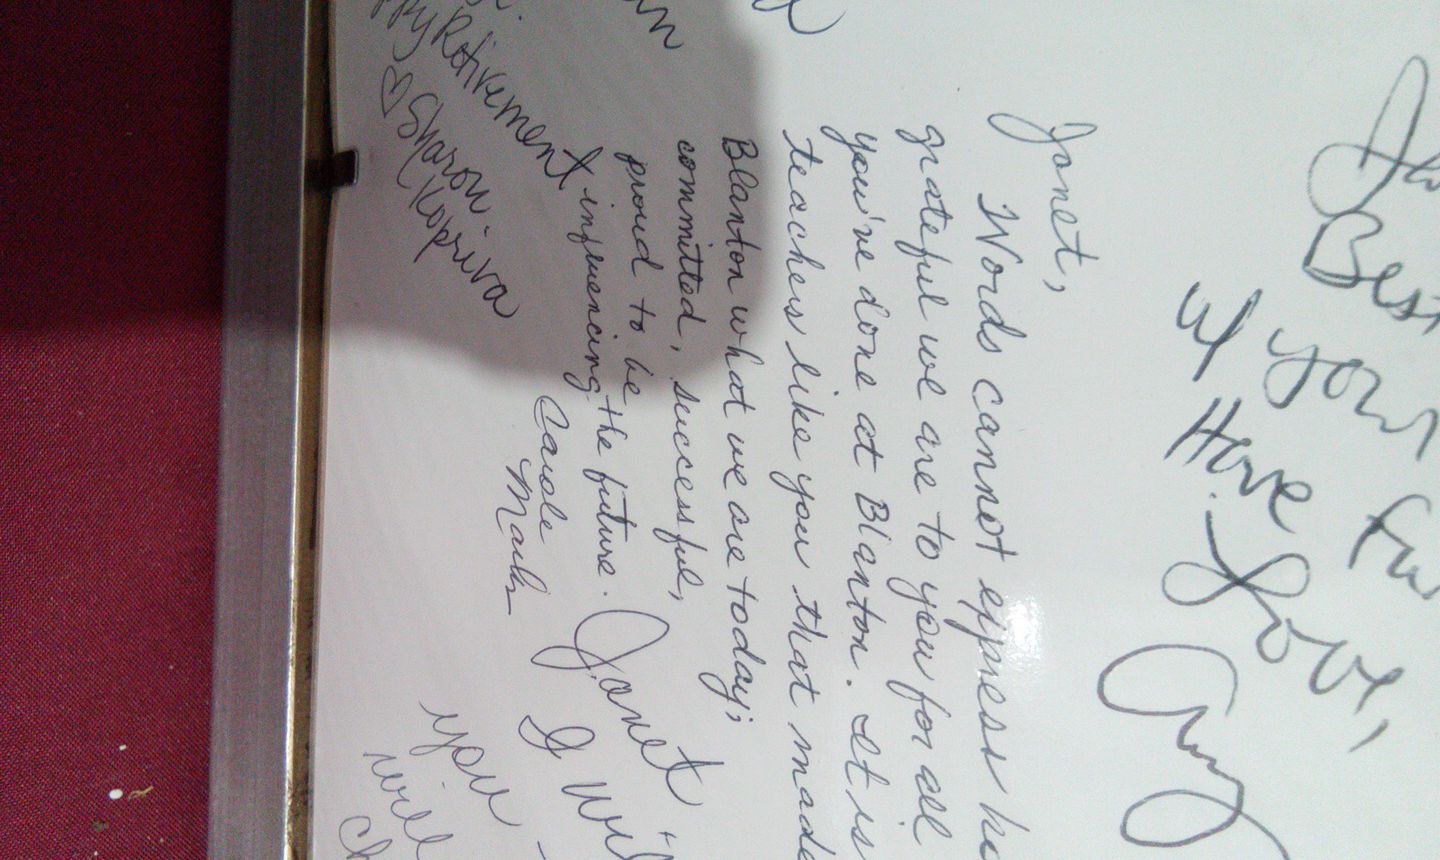 Best
w/ your
Have fun
Love,
Amy
Janet,
Words cannot express ho
grateful we are to you for all
you've done at Blanton. It is
teachers like you that made
Blanton what we are today;
committed, successful,
proud to be
influencing the future.
Carole
ppy Retirement
♡ Sharon
Kopriva
Janet
I will
you
will
ch